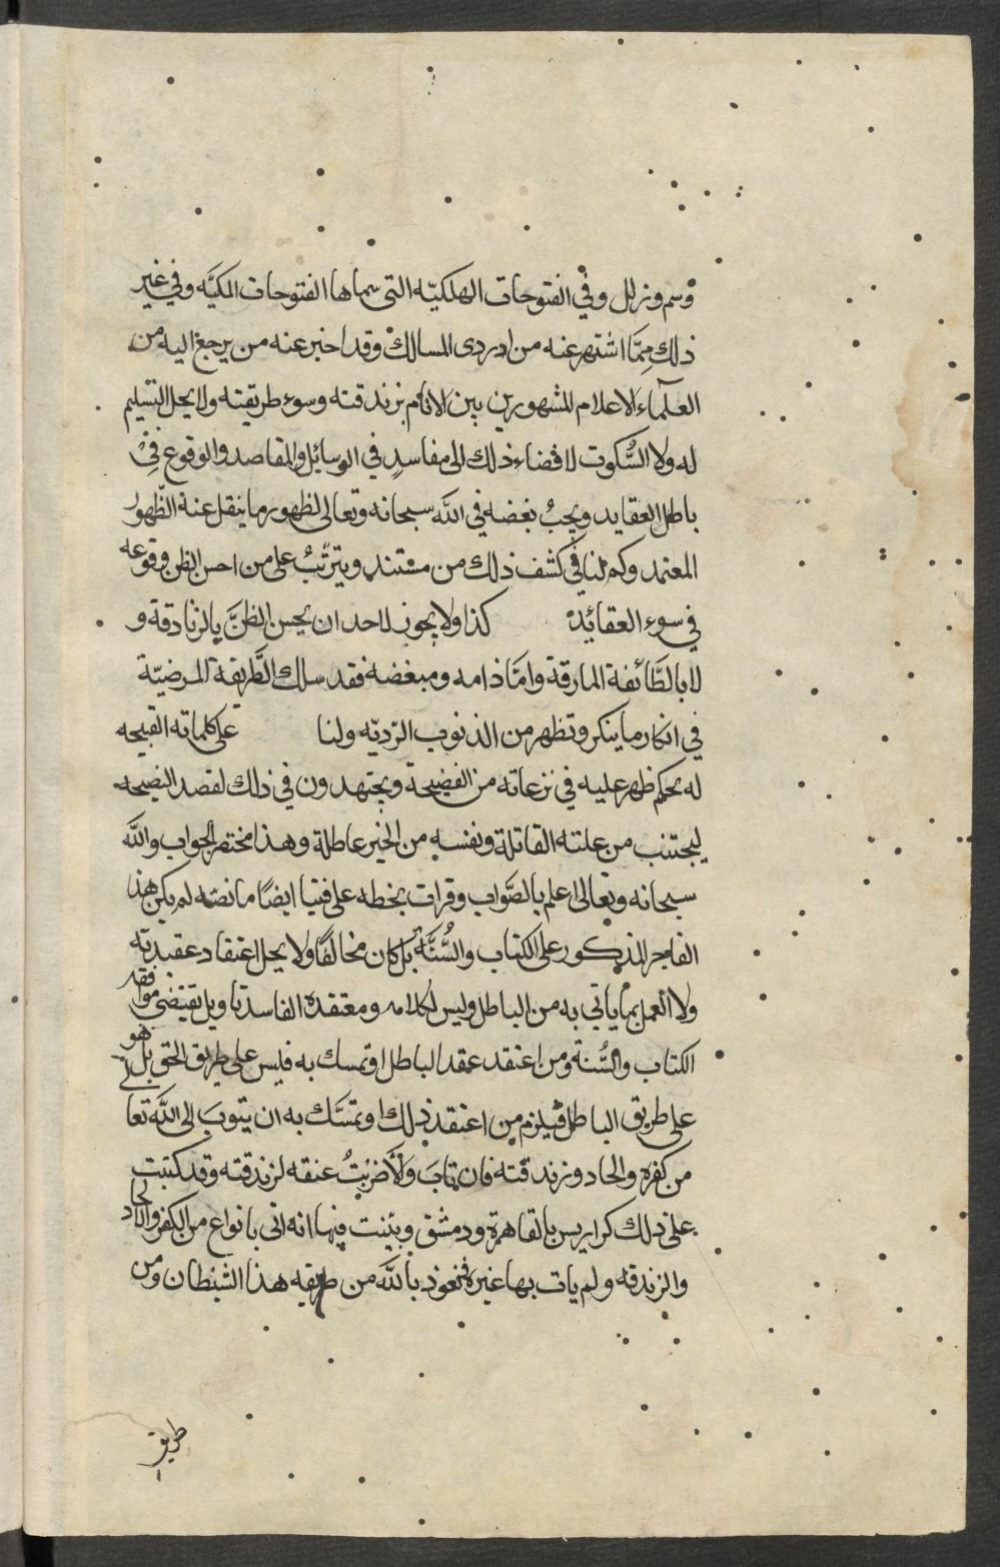 وسم وزلل وفي الفتوحات الهلكيّه التى سماها الفتوحات المكيّه وفي غير
ذلك مِمّا اشتهر عنه من اردى المسالك وقد اخبر عنه من يرجع اليه من
العلماء الاعلام المشهورين بين الانام بزندقته وسوء طريقته ولا يحل التسليم
له ولا السُّكوت لافضاء ذلك الى مفاسد في الوسائل والمقاصد والوقوع في
باطل العقايد ويجب بغضه في الله سبحانه وتعالى لظهور ما ينقل عنه الظهور
المعتمد وكم لنا في كشف ذلك من مستند ويترتّبُ على من احسن الظن وقوعه
في سوء العقائد كذا ولا يجوز لاحد ان يحسن الظنَّ بالزنادقة و
لا بالطَّائفة المارقة وامّا ذامه ومبغضه فقد سلك الطَّريقة المرضيّة
في انكار ما ينكر وتظهر من الذنوب الرّديّه ولنا على كلماته القبيحه
له يحكم ظهر عليه في نزعاته من الفضيحة ويجتهدون في ذلك لقصد النصيحه
ليجتنب من علته القاتلة ونفسه من الخير عاطلة وهذا مختصر الجواب والله
سبحانه وتعالى اعلم بالصَّواب وقرات بخطه على فتيا ايضًا ما نصّه لم يكن هذا
الفاجر المذكور على الكتاب والسُّنَّة بل كان مخالفًا ولا يحل اعتقاد عقيدته
ولا العمل بما ياتي به من الباطل وليس لكلامه ومعتقده الفاسد تاويل يقتضي موافقه
الكتاب والسُّنة ومن اعتقد عقد الباطل او تمسك به فليس على طريق الحق بل هو
على طريق الباطل فيلزم من اعتقد ذلك او تمسَّك به ان يتوبَ الى الله تعالى
من كفره والحاده وزندقته فان تابَ والّا ضربتُ عنقه لزندقته وقد كتبت
على ذلك كراريس بالقاهرة ودمشق وبيّنت فيها انه اتى بانواع من الكفر والالحاد
والزندقه ولم يات بها غيره فنعوذ بالله من طريقه هذا الشيطان ومن
طريق